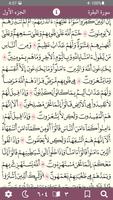 4:57 100%
سورة البقرة الجزء الأول
إِنَّ ٱلَّذِينَ كَفَرُوا۟ سَوَآءٌ عَلَيْهِمْ ءَأَنذَرْتَهُمْ أَمْ لَمْ تُنذِرْهُمْ
لَا يُؤْمِنُونَ ٦ خَتَمَ ٱللَّهُ عَلَىٰ قُلُوبِهِمْ وَعَلَىٰ سَمْعِهِمْ وَعَلَىٰٓ
أَبْصَٰرِهِمْ غِشَٰوَةٌ وَلَهُمْ عَذَابٌ عَظِيمٌ ٧ وَمِنَ ٱلنَّاسِ مَن يَقُولُ
ءَامَنَّا بِٱللَّهِ وَبِٱلْيَوْمِ ٱلْءَاخِرِ وَمَا هُم بِمُؤْمِنِينَ ٨ يُخَٰدِعُونَ
ٱللَّهَ وَٱلَّذِينَ ءَامَنُوا۟ وَمَا يَخْدَعُونَ إِلَّآ أَنفُسَهُمْ وَمَا يَشْعُرُونَ ٩
فِى قُلُوبِهِم مَّرَضٌ فَزَادَهُمُ ٱللَّهُ مَرَضًا وَلَهُمْ عَذَابٌ أَلِيمٌۢ
بِمَا كَانُوا۟ يَكْذِبُونَ ١٠ وَإِذَا قِيلَ لَهُمْ لَا تُفْسِدُوا۟ فِى ٱلْأَرْضِ
قَالُوٓا۟ إِنَّمَا نَحْنُ مُصْلِحُونَ ١١ أَلَآ إِنَّهُمْ هُمُ ٱلْمُفْسِدُونَ
وَلَٰكِن لَّا يَشْعُرُونَ ١٢ وَإِذَا قِيلَ لَهُمْ ءَامِنُوا۟ كَمَآ ءَامَنَ
ٱلنَّاسُ قَالُوٓا۟ أَنُؤْمِنُ كَمَآ ءَامَنَ ٱلسُّفَهَآءُ أَلَآ إِنَّهُمْ هُمُ
ٱلسُّفَهَآءُ وَلَٰكِن لَّا يَعْلَمُونَ ١٣ وَإِذَا لَقُوا۟ ٱلَّذِينَ ءَامَنُوا۟
قَالُوٓا۟ ءَامَنَّا وَإِذَا خَلَوْا۟ إِلَىٰ شَيَٰطِينِهِمْ قَالُوٓا۟ إِنَّا مَعَكُمْ
إِنَّمَا نَحْنُ مُسْتَهْزِءُونَ ١٤ ٱللَّهُ يَسْتَهْزِئُ بِهِمْ وَيَمُدُّهُمْ فِى
طُغْيَٰنِهِمْ يَعْمَهُونَ ١٥ أُو۟لَٰٓئِكَ ٱلَّذِينَ ٱشْتَرَوُا۟ ٱلضَّلَٰلَةَ
بِٱلْهُدَىٰ فَمَا رَبِحَت تِّجَٰرَتُهُمْ وَمَا كَانُوا۟ مُهْتَدِينَ ١٦
٣ ٦٠٤